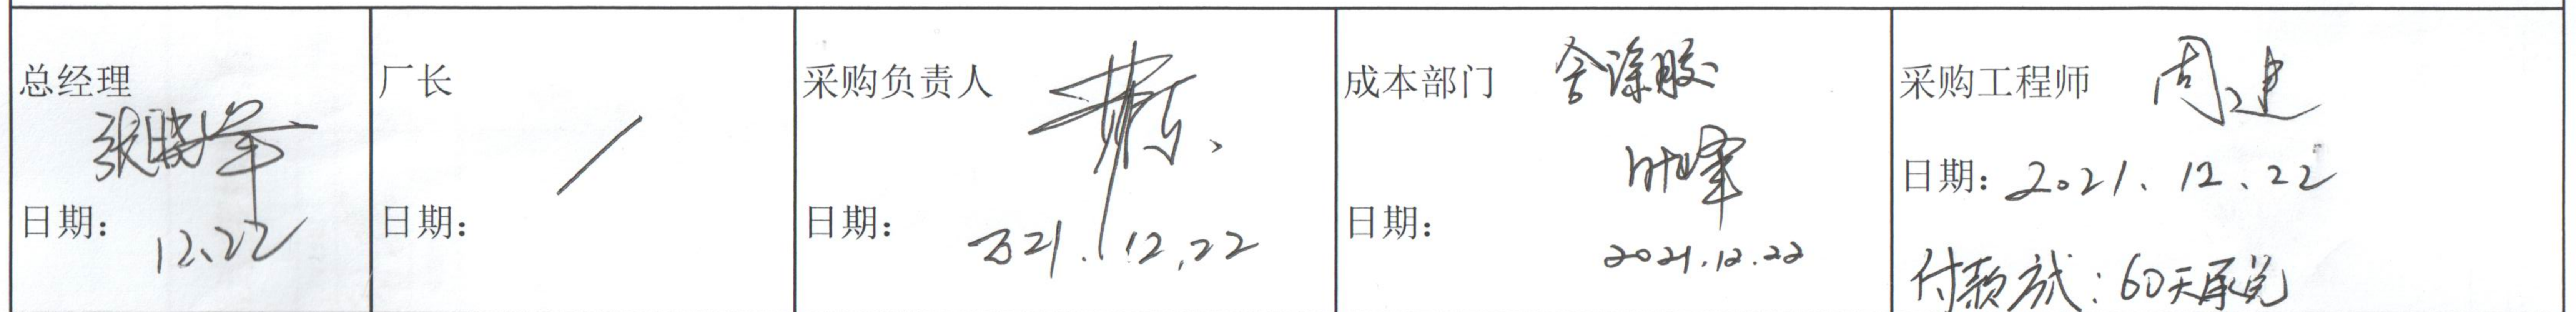 总经理
张晓军
日期：
12.22
厂长
/
日期：
采购负责人
日期：
2021.12.22
成本部门 含涂胶
叶峰
日期：
2021.12.22
采购工程师 周建
日期：2021.12.22
付款方式：60天承兑